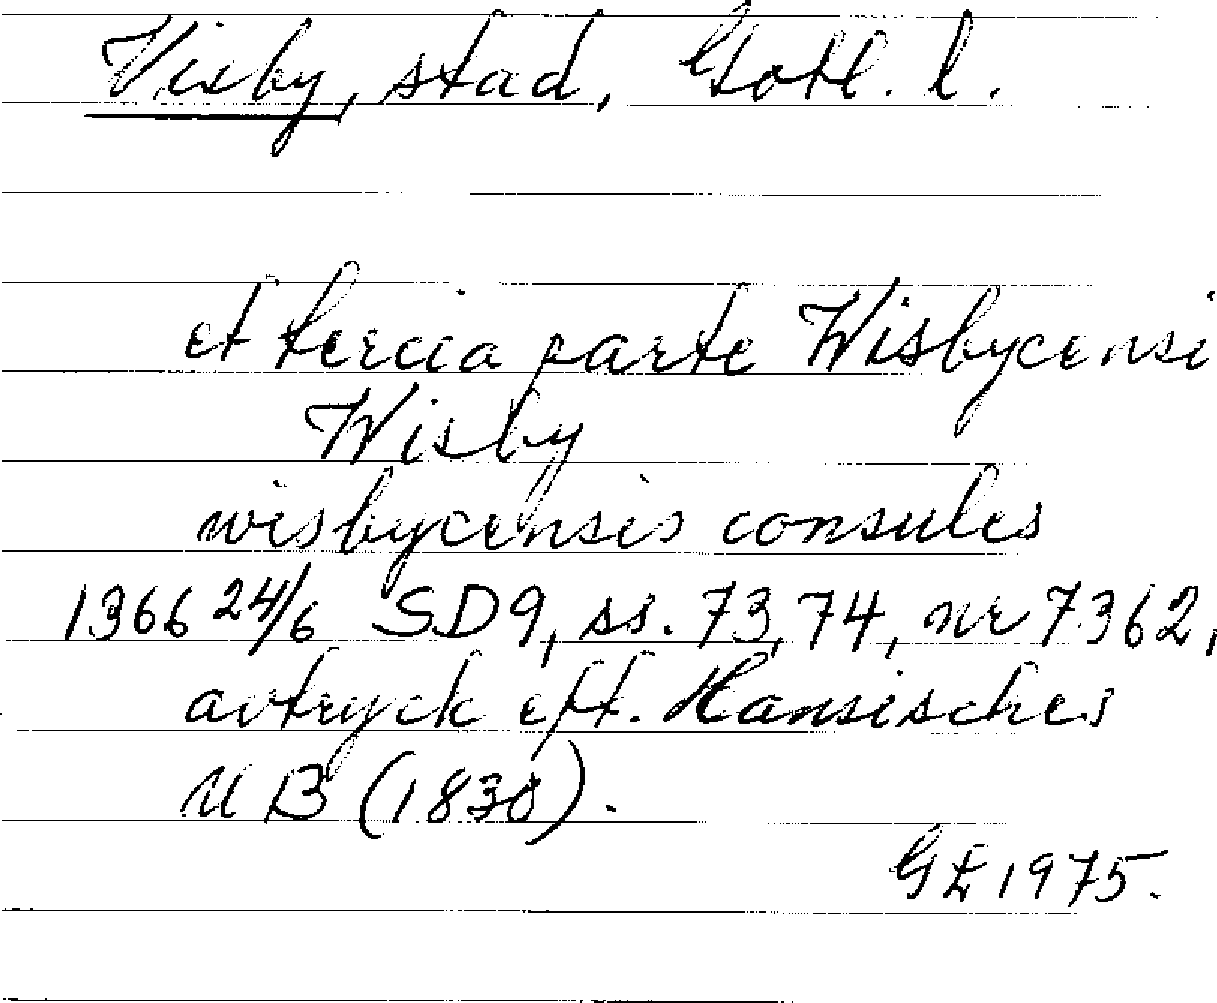 Visby, stad, Gotl. l.
et tercia parte Wisbycensi
Wisby
wisbycensis consules
1366 24/6 SD9, ss. 73, 74, nr 7362,
avtryck eft. Hansisches
UB (1830).
GE 1975.